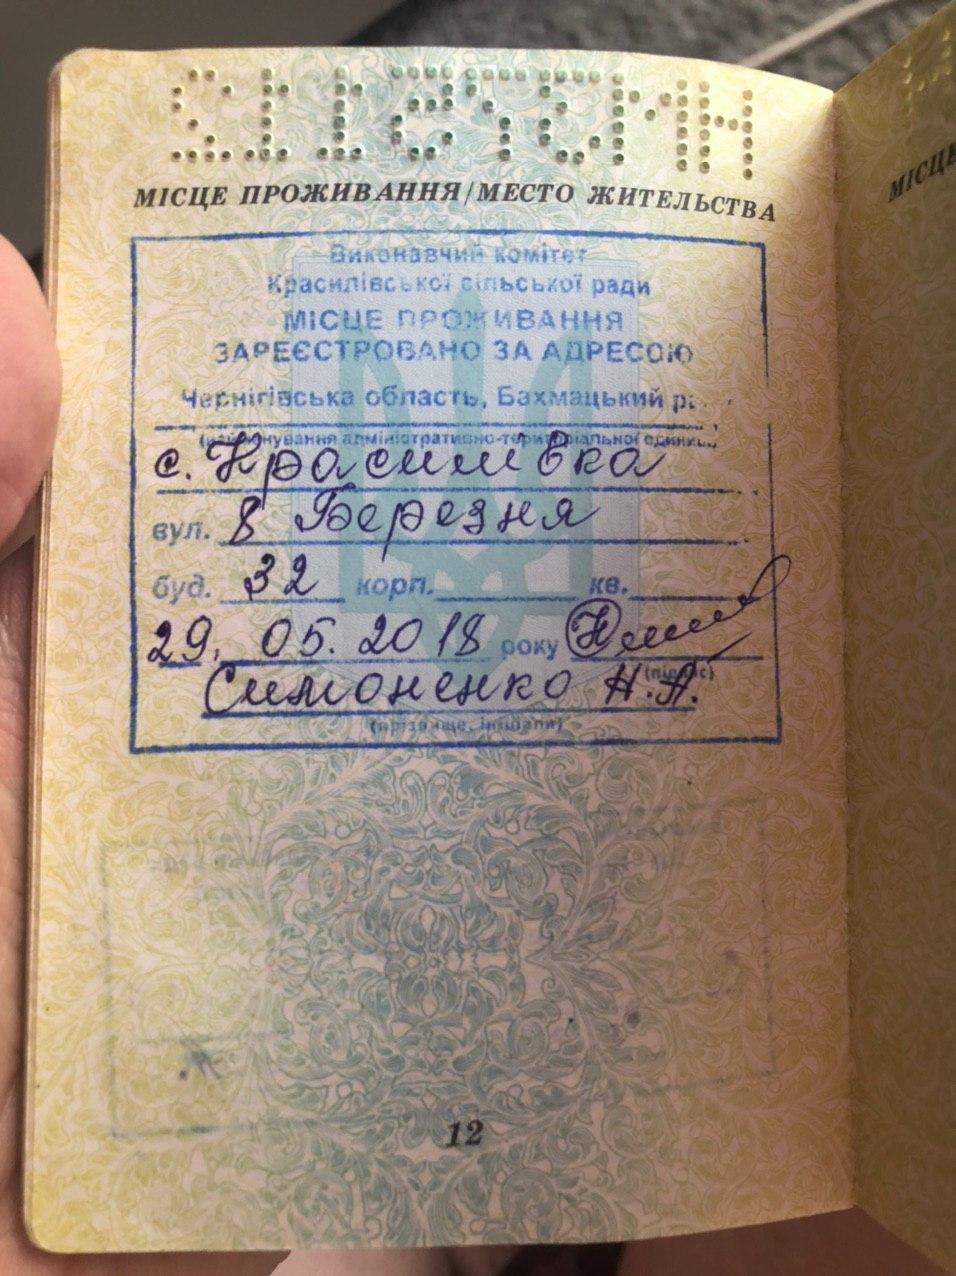 МІСЦЕ ПРОЖИВАННЯ/МЕСТО ЖИТЕЛЬСТВА
Виконавчий комітет
Красилівської сільської ради
МІСЦЕ ПРОЖИВАННЯ
ЗАРЕЄСТРОВАНО ЗА АДРЕСОЮ
Чернігівська область, Бахмацький
(найменування адміністративно-територіальної одиниці)
с. Красилівка
вул. 8 Березня
буд. 32 корп. кв.
29. 05. 2018 року
(підпис)
Симоненко Н.А.
(прізвище, ініціали)
12
МІСЦЕ